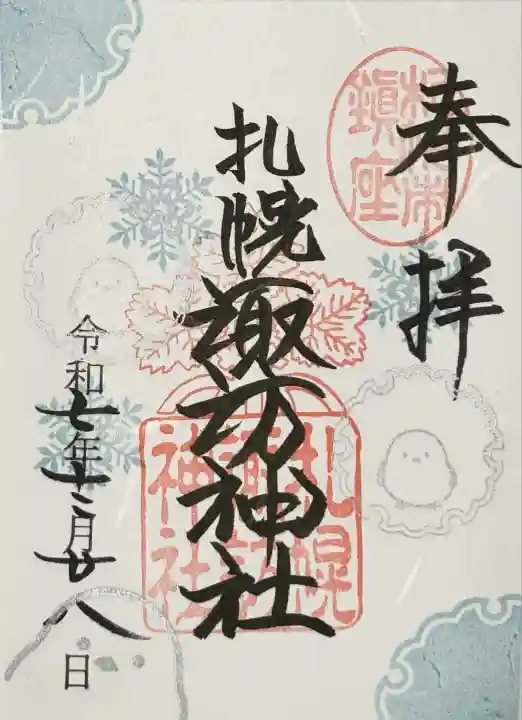 奉拝
札幌市鎮座
札幌諏訪神社
札幌諏訪神社
令和七年十二月廿八日